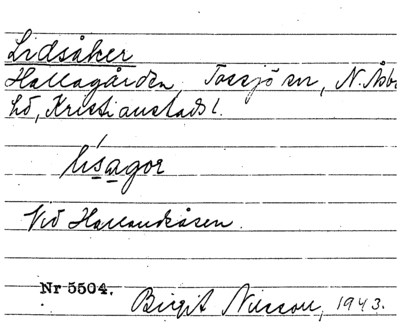 Lidsåker
Hallagården, Tossjö sn, N. Åsbo
hd, Kristianstads l.
lísagor
Vid Hallandsåsen.
Nr 5504.
Birgit Nilsson, 1943.